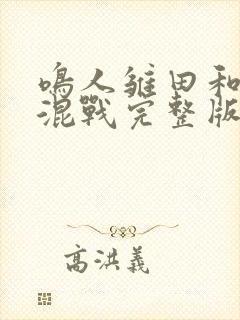 鳴人雛田和
混戰完整版
高洪義